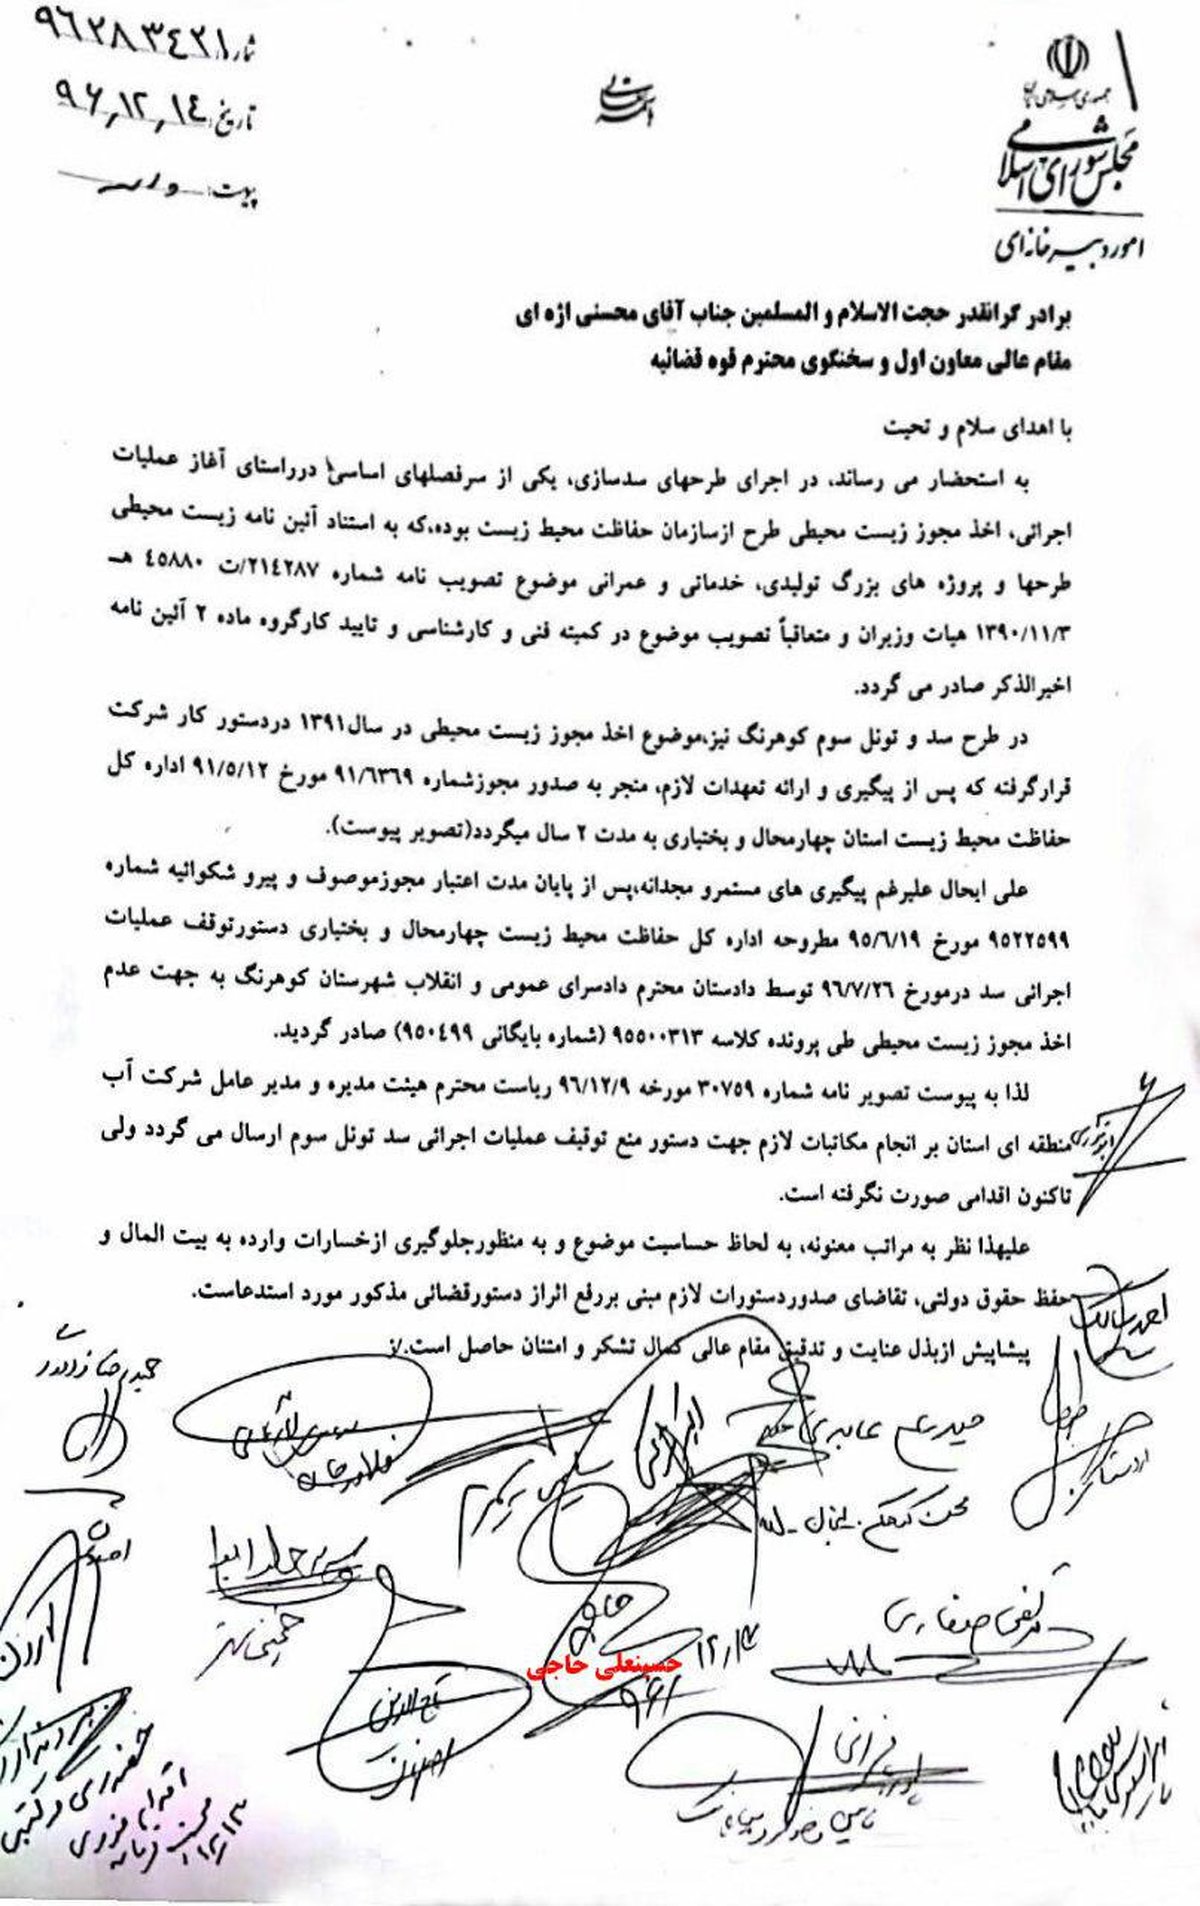 شماره: ۹۶۲۸۳۴۲۱
تاریخ: ۹۶٫۱۲٫۱۴
پیوست: دارد
بسمه تعالی
جمهوری اسلامی ایران
مجلس شورای اسلامی
امور دبیرخانه‌ای
برادر گرانقدر حجت الاسلام و المسلمین جناب آقای محسنی اژه ای
مقام عالی معاون اول و سخنگوی محترم قوه قضائیه
با اهدای سلام و تحیت
به استحضار می رساند، در اجرای طرحهای سدسازی، یکی از سرفصلهای اساسی درراستای آغاز عملیات
اجرائی، اخذ مجوز زیست محیطی طرح ازسازمان حفاظت محیط زیست بوده،که به استناد آئین نامه زیست محیطی
طرحها و پروژه های بزرگ تولیدی، خدماتی و عمرانی موضوع تصویب نامه شماره ۲۱۴۲۸۷/ت ۴۵۸۸۰ هـ
۱۳۹۰/۱۱/۳ هیات وزیران و متعاقباً تصویب موضوع در کمیته فنی و کارشناسی و تایید کارگروه ماده ۲ آئین نامه
اخیرالذکر صادر می گردد.
در طرح سد و تونل سوم کوهرنگ نیز،موضوع اخذ مجوز زیست محیطی در سال۱۳۹۱ دردستور کار شرکت
قرارگرفته که پس از پیگیری و ارائه تعهدات لازم، منجر به صدور مجوزشماره ۹۱/۶۳۶۹ مورخ ۹۱/۵/۱۲ اداره کل
حفاظت محیط زیست استان چهارمحال و بختیاری به مدت ۲ سال میگردد(تصویر پیوست).
علی ایحال علیرغم پیگیری های مستمرو مجدانه،پس از پایان مدت اعتبار مجوزموصوف و پیرو شکوائیه شماره
۹۵۲۲۵۹۹ مورخ ۹۵/۶/۱۹ مطروحه اداره کل حفاظت محیط زیست چهارمحال و بختیاری دستورتوقف عملیات
اجرائی سد درمورخ ۹۶/۷/۲۶ توسط دادستان محترم دادسرای عمومی و انقلاب شهرستان کوهرنگ به جهت عدم
اخذ مجوز زیست محیطی طی پرونده کلاسه ۹۵۵۰۰۳۱۳ (شماره بایگانی ۹۵۰۴۹۹) صادر گردید.
لذا به پیوست تصویر نامه شماره ۳۰۷۵۹ مورخه ۹۶/۱۲/۹ ریاست محترم هیئت مدیره و مدیر عامل شرکت آب
منطقه ای استان بر انجام مکاتبات لازم جهت دستور منع توقیف عملیات اجرائی سد تونل سوم ارسال می گردد ولی
تاکنون اقدامی صورت نگرفته است.
علیهذا نظر به مراتب معنونه، به لحاظ حساسیت موضوع و به منظورجلوگیری ازخسارات وارده به بیت المال و
حفظ حقوق دولتی، تقاضای صدوردستورات لازم مبنی بررفع اثراز دستورقضائی مذکور مورد استدعاست.
پیشاپیش ازبذل عنایت و تدقیق مقام عالی کمال تشکر و امتنان حاصل است.
حمیدرضا فولادگر
احمد سالک
حیدرعلی عابدی
محسن کوهکن
مرتضی صفاری
حاجی
حسینعلی حاجی
۹۶/۱۲/۱۴
ناهید تاج‌الدین
اصفهان